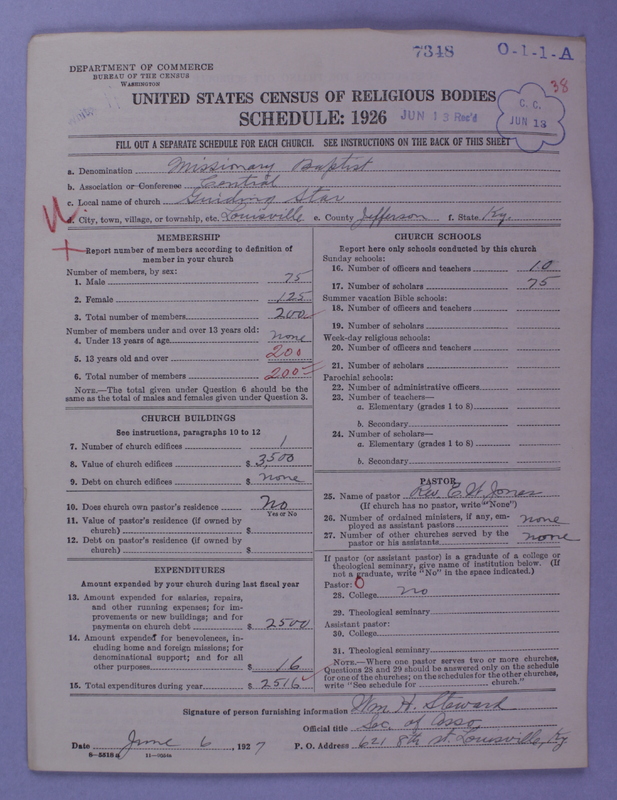 7348 O-1-1-A
DEPARTMENT OF COMMERCE
BUREAU OF THE CENSUS
WASHINGTON
38
UNITED STATES CENSUS OF RELIGIOUS BODIES
SCHEDULE: 1926
JUN 13 Rec'd
C. C.
JUN 13
FILL OUT A SEPARATE SCHEDULE FOR EACH CHURCH. SEE INSTRUCTIONS ON THE BACK OF THIS SHEET
a. Denomination Missionary Baptist
b. Association or Conference Central
c. Local name of church Guiding Star
d. City, town, village, or township, etc. Louisville e. County Jefferson f. State Ky.
MEMBERSHIP
Report number of members according to definition of
member in your church
Number of members, by sex:
1. Male 75
2. Female 125
3. Total number of members 200
Number of members under and over 13 years old:
4. Under 13 years of age none
5. 13 years old and over 200
6. Total number of members 200
NOTE.—The total given under Question 6 should be the
same as the total of males and females given under Question 3.
CHURCH BUILDINGS
See instructions, paragraphs 10 to 12
7. Number of church edifices 1
8. Value of church edifices $ 3,500
9. Debt on church edifices $ none
10. Does church own pastor's residence No
Yes or No
11. Value of pastor's residence (if owned by
church) $
12. Debt on pastor's residence (if owned by
church) $
EXPENDITURES
Amount expended by your church during last fiscal year
13. Amount expended for salaries, repairs,
and other running expenses; for im-
provements or new buildings; and for
payments on church debt $ 2500
14. Amount expended for benevolences, in-
cluding home and foreign missions; for
denominational support; and for all
other purposes $ 16
15. Total expenditures during year $ 2516
CHURCH SCHOOLS
Report here only schools conducted by this church
Sunday schools:
16. Number of officers and teachers 10
17. Number of scholars 75
Summer vacation Bible schools:
18. Number of officers and teachers
19. Number of scholars
Week-day religious schools:
20. Number of officers and teachers
21. Number of scholars
Parochial schools:
22. Number of administrative officers
23. Number of teachers—
a. Elementary (grades 1 to 8)
b. Secondary
24. Number of scholars—
a. Elementary (grades 1 to 8)
b. Secondary
PASTOR
25. Name of pastor Rev. E. W. Jones
(If church has no pastor, write "None")
26. Number of ordained ministers, if any, em-
ployed as assistant pastors none
27. Number of other churches served by the
pastor or his assistants none
If pastor (or assistant pastor) is a graduate of a college or
theological seminary, give name of institution below. (If
not a graduate, write "No" in the space indicated.)
Pastor: 0
28. College no
29. Theological seminary
Assistant pastor:
30. College
31. Theological seminary
NOTE.—Where one pastor serves two or more churches,
Questions 28 and 29 should be answered only on the schedule
for one of the churches; on the schedules for the other churches,
write "See schedule for church."
Signature of person furnishing information Wm H. Steward
Official title Sec. of Asso,
Date June 6, 1927 P. O. Address 621 8th st. Louisville, Ky
8—5518a 11—9054a